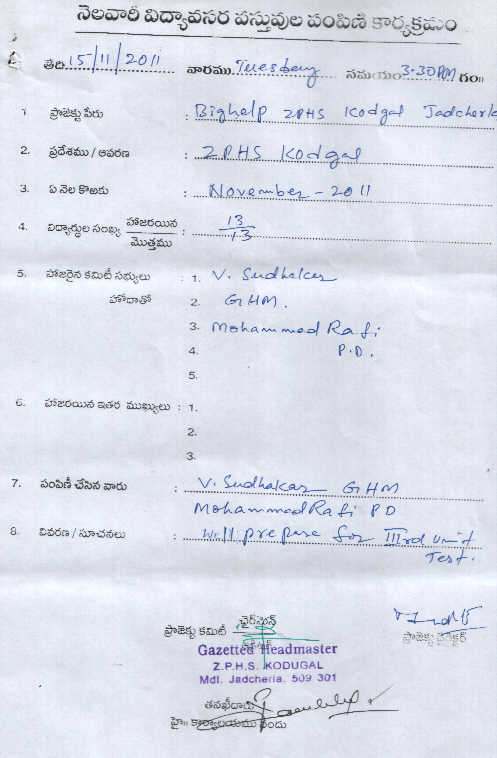 నెలవారీ విద్యావసర వస్తువుల పంపిణి కార్యక్రమం
తేది. 15/11/2011 వారము. Tuesday సమయం 3-30PM గం॥
1 ప్రాజెక్టు పేరు : Bighelp ZPHS Kodgal Jadcherla
2. ప్రదేశము / ఆవరణ : ZPHS Kodgal
3. ఏ నెల కొఱకు : November - 2011
4. విద్యార్థుల సంఖ్య హాజరయిన / మొత్తము : 13 / 13
5. హాజరైన కమిటీ సభ్యులు : 1. V. Sudhakar
హోదాతో 2. GHM.
3. Mohammed Rafi
4. P.D.
5.
6. హాజరయిన ఇతర ముఖ్యులు : 1.
2.
3.
7. పంపిణీ చేసిన వారు : V. Sudhakar GHM
Mohammed Rafi PD
8. వివరణ / సూచనలు : Will prepare for IIIrd unit
Test.
ప్రాజెక్టు కమిటీ ఛైర్మన్
ప్రాజెక్టు డైరెక్టర్
Gazetted Headmaster
Z.P.H.S. KODUGAL
Mdl. Jadcherla. 509 301
తనఖీదారు
హై॥ కార్యాలయము నందు